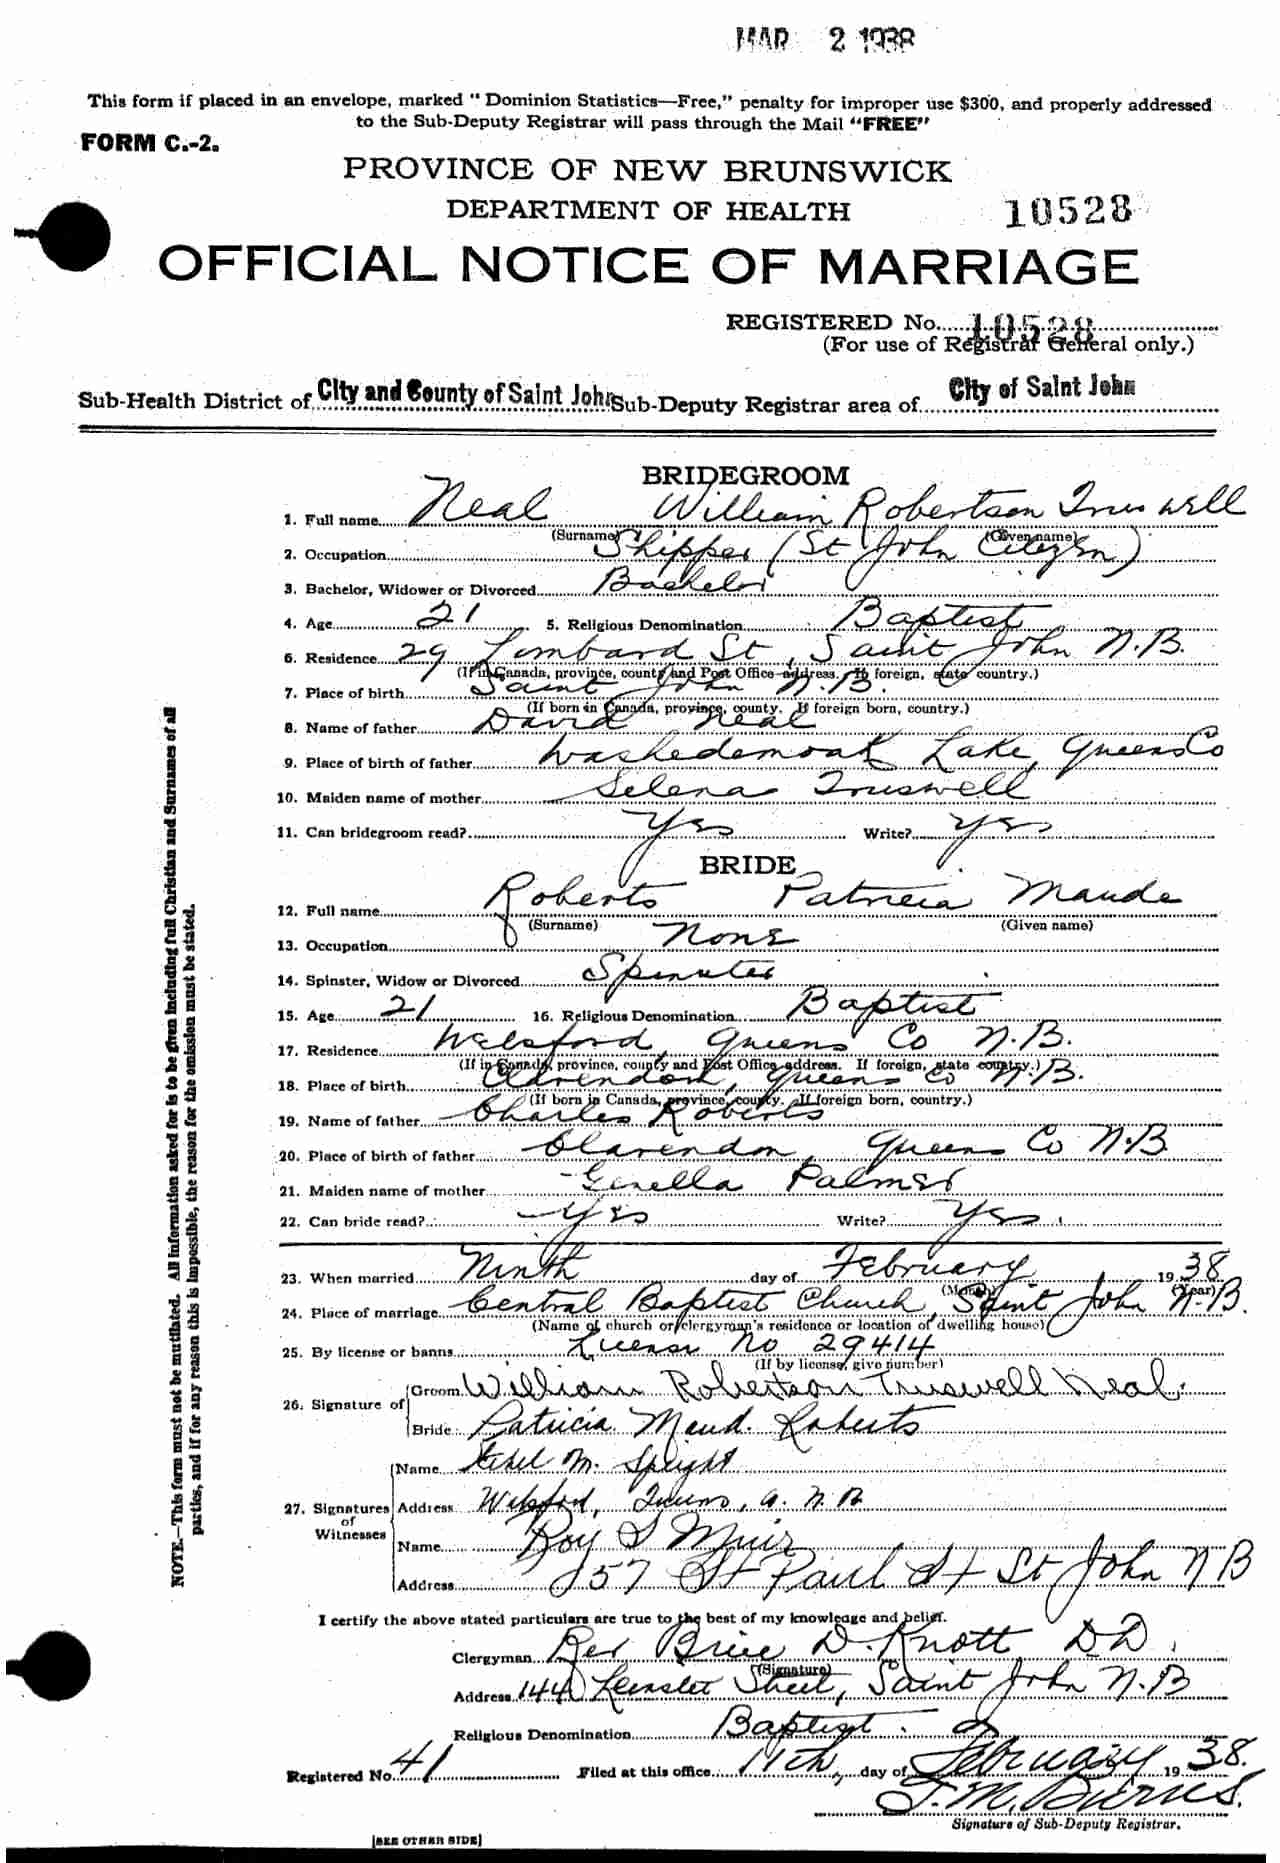 MAR 2 1938
This form if placed in an envelope, marked "Dominion Statistics—Free," penalty for improper use $300, and properly addressed
to the Sub-Deputy Registrar will pass through the Mail "FREE"
FORM C.-2.
PROVINCE OF NEW BRUNSWICK
DEPARTMENT OF HEALTH
10528
OFFICIAL NOTICE OF MARRIAGE
REGISTERED No. 10528
(For use of Registrar General only.)
Sub-Health District of City and County of Saint John Sub-Deputy Registrar area of City of Saint John
BRIDEGROOM
1. Full name Neal William Robertson Truswell
(Surname) (Given name)
2. Occupation Shipper (St John Citizen)
3. Bachelor, Widower or Divorced Bachelor
4. Age 21 5. Religious Denomination Baptist
6. Residence 29 Lombard St, Saint John N.B.
(If in Canada, province, county and Post Office address. If foreign, state country.)
7. Place of birth Saint John N.B.
(If born in Canada, province, county. If foreign born, country.)
8. Name of father David Neal
9. Place of birth of father Washedemoak Lake, Queens Co
10. Maiden name of mother Selena Truswell
11. Can bridegroom read? Yes Write? Yes
BRIDE
12. Full name Roberts Patricia Maude
(Surname) (Given name)
13. Occupation None
14. Spinster, Widow or Divorced Spinster
15. Age 21 16. Religious Denomination Baptist
17. Residence Welsford, Queens Co N.B.
(If in Canada, province, county and Post Office address. If foreign, state country.)
18. Place of birth Clarendon, Queens Co N.B.
(If born in Canada, province, county. If foreign born, country.)
19. Name of father Charles Roberts
20. Place of birth of father Clarendon, Queens Co N.B
21. Maiden name of mother Genella Palmer
22. Can bride read? Yes Write? Yes
23. When married Ninth day of February 1938
(Month) (Year)
24. Place of marriage Central Baptist Church, Saint John N.B.
(Name of church or clergyman's residence or location of dwelling house)
25. By license or banns License No 29414
(If by license, give number)
26. Signature of Groom William Robertson Truswell Neal.
Bride Patricia Maud. Roberts
27. Signatures of Witnesses
Name Ethel M. Speight
Address Welsford, Queens, Co. N.B
Name Roy S Muir
Address 157 St Paul St St John N B
I certify the above stated particulars are true to the best of my knowledge and belief.
Clergyman Rev Brice D. Knott D.D.
(Signature)
Address 144 Leinster Street, Saint John N.B
Religious Denomination Baptist.
Registered No. 41 Filed at this office 11th, day of February 1938.
J. M. Burns.
Signature of Sub-Deputy Registrar.
[SEE OTHER SIDE]
NOTE.—This form must not be mutilated. All information asked for is to be given including full Christian and Surnames of all
parties, and if for any reason this is impossible, the reason for the omission must be stated.